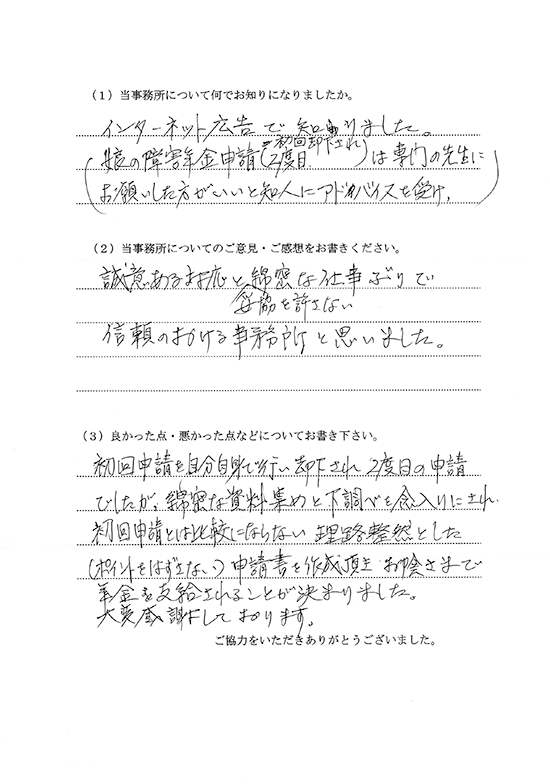 (1)当事務所について何でお知りになりましたか。
インターネット広告で知りました。
初回却下され
(娘の障害年金申請(2度目)は専門の先生に
お願いした方がいいと知人にアドバイスを受け,)
(2)当事務所についてのご意見・ご感想をお書きください。
誠意あるお応と綿密な仕事ぶりで
妥協を許さない
信頼のおける事務所と思いました。
(3)良かった点・悪かった点などについてお書き下さい。
初回申請を自分自身で行い却下され2度目の申請
でしたが、綿密な資料集めと下調べを念入りにされ
初回申請とは比較にならない理路整然とした
(ポイントをはずさない)申請書を作成頂き お陰さまで
年金を支給されることが決まりました。
大変感謝しております。
ご協力をいただきありがとうございました。